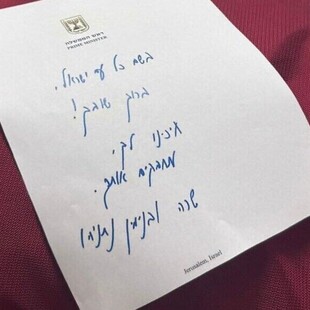 ראש הממשלה
PRIME MINISTER
בשם כל עם ישראל,
ברוך שובך!
חיכינו לך.
מחבקים אותך.
שרה ובנימין נתניהו
Jerusalem, Israel